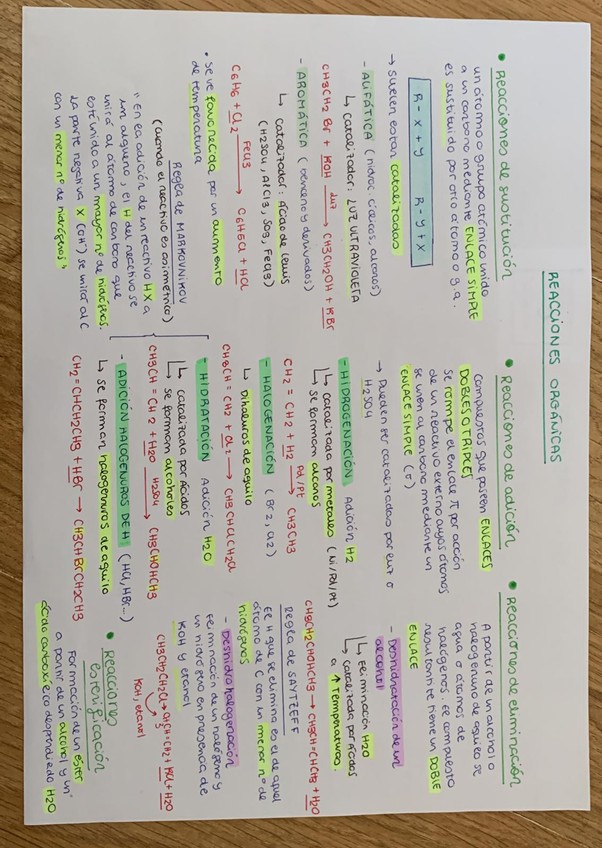 REACCIONES ORGÁNICAS
• Reacciones de sustitución
un átomo o grupo atómico unido
a un carbono mediante ENLACE SIMPLE
es sustituido por otro átomo o g.a.
R - X + Y R - Y + X
→ suelen estar catalizadas
- ALIFÁTICA (hidroc. cíclicos, alcanos)
↳ catalizador: LUZ ULTRAVIOLETA
CH3CH2Br + KOH luz → CH3CH2OH + KBr
- AROMÁTICA (benceno y derivados)
↳ catalizador: Ácido de Lewis
(H2SO4, AlCl3, SO3, FeCl3)
C6H6 + Cl2 FeCl3 → C6H5Cl + HCl
• Se ve favorecida por un aumento
de temperatura
Regla de MARKOVNIKOV
(cuando el reactivo es asimétrico)
"En la adición de un reactivo HX a
un alqueno, el H del reactivo se
unirá al átomo de carbono que
esté unido a un mayor nº de hidrógenos.
La parte negativa X (OH) se unirá al C
con un menor nº de hidrógenos"
• Reacciones de adición
Compuestos que poseen ENLACES
DOBLES O TRIPLES
Se rompe el enlace π por acción
de un reactivo externo cuyos átomos
se unen al carbono mediante un
ENLACE SIMPLE (σ)
→ Pueden ser catalizadas por
H2SO4
- HIDROGENACIÓN Adición H2
↳ catalizada por metales (Ni/Pd/Pt)
↳ se forman alcanos
CH2 = CH2 + H2 Pd/Pt → CH3CH3
- HALOGENACIÓN (Br2, Cl2)
↳ Dihaluros de alquilo
CH3CH = CH2 + Cl2 → CH3CHClCH2Cl
- HIDRATACIÓN Adición H2O
↳ catalizada por ácidos
↳ se forman alcoholes
CH3CH = CH2 + H2O H2SO4 → CH3CHOHCH3
- ADICIÓN HALOGENUROS DE H (HCl, HBr...)
↳ se forman halogenuros de alquilo
CH2 = CHCH2CH3 + HBr → CH3CHBrCH2CH3
• Reacciones de eliminación
A partir de un alcohol o
halogenuro de alquilo se
agua o átomos de
halógenos. El compuesto
resultante tiene un DOBLE
ENLACE
- Deshidratación de un
alcohol
↳ Eliminación H2O
↳ catalizada por ácidos
a ↑Temperaturas.
CH3CH2CHOHCH3 → CH3CH=CHCH3 + H2O
REGLA DE SAYTZEFF
El H que se elimina es el de aquel
átomo de C con un menor nº de
hidrógenos
- Deshidrohalogenación
Eliminación de un halógeno y
un hidrógeno en presencia de
KOH y etanol
CH3CH2CH2Cl → CH3CH=CH2 + KCl + H2O
KOH, etanol
• Reacciones
esterificación
Formación de un éster
a partir de un alcohol y un
ácido carboxílico desprendiendo H2O